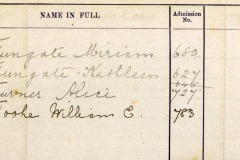 NAME IN FULL Admission No.
Tungate Miriam 680
Tungate Kathleen 627
646
Turner Alice 727
Tooke William E. 783